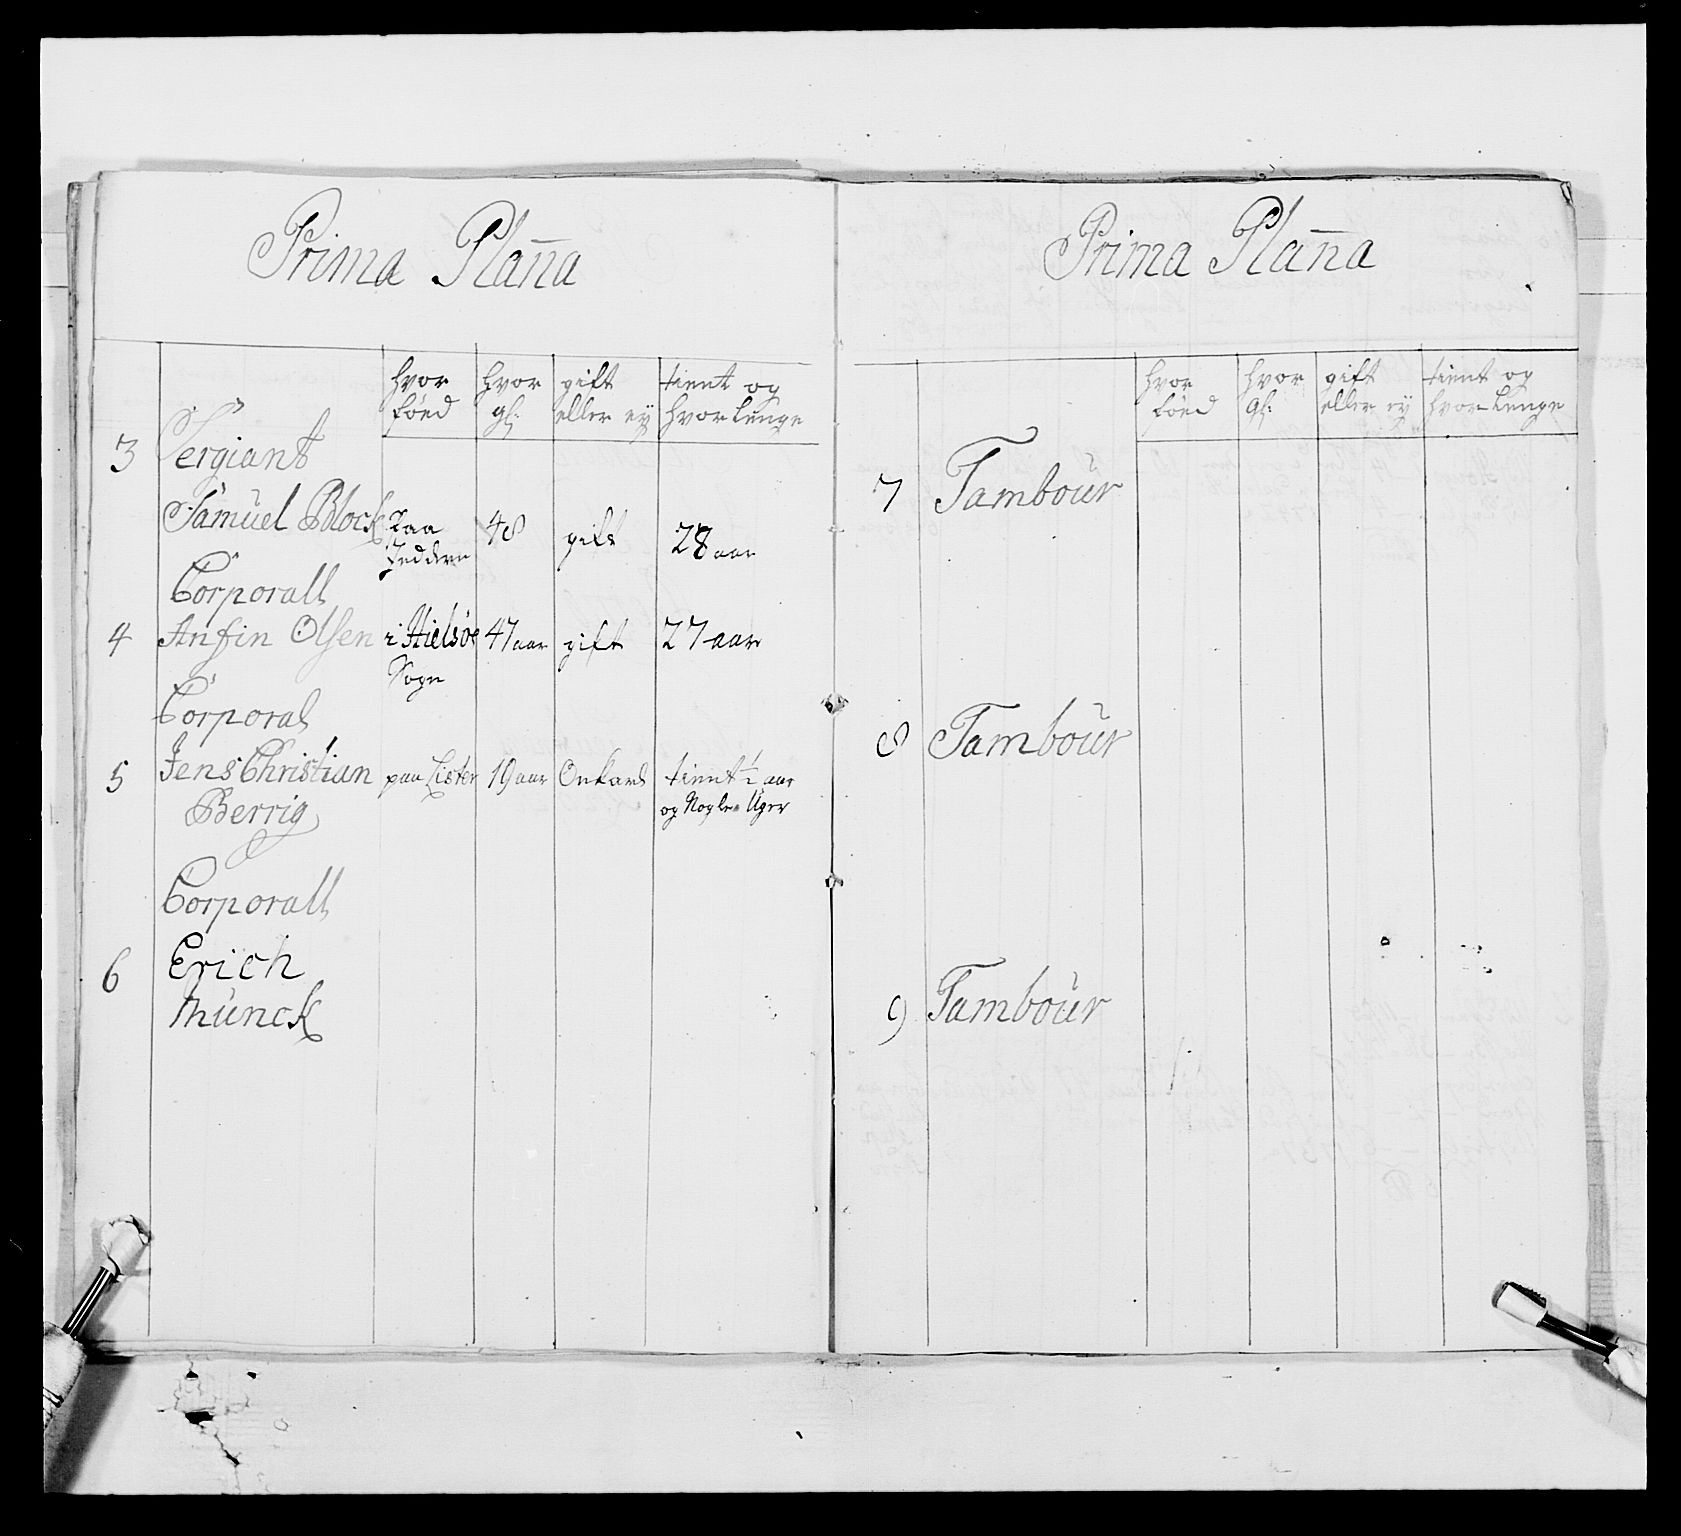 Prima Plan̅a
hvor hvor gift tient og
föed gl: eller ey hvor lenge
3 Sergiant
Samuel Block Paa 48 gift 28 aar
Jedderen
Corporall
4 Anfin Olsen i Hielsöe 47 aar gift 27 aar
Sogn
Corporal
5 Jens Christian paa Lister 19 aar tient ½ aar
Berrig og Nogle Uger
Corporall
6 Erich
Munck
Prima Plan̅a
hvor hvor gift tient og
föed gl: eller ey hvor lenge
7 Tambour
8 Tambour
9 Tambour